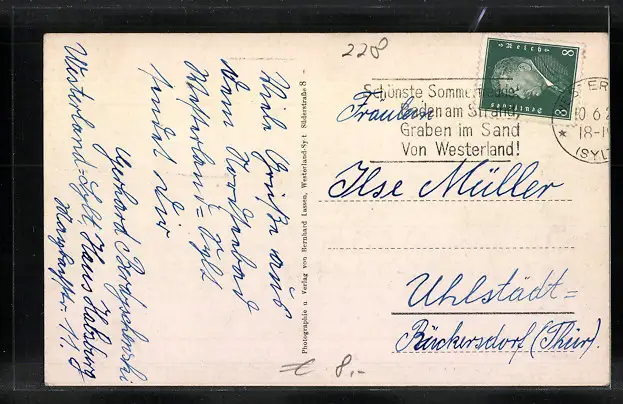 228
Viele Grüße aus
dem Nordseebad
Westerland-Sylt
sendet Dir
Gerhard
Westerland-Sylt Haus Habsburg
11
Photographie u Verlag von Bernhard Lassen, Westerland-Sylt Süderstraße 8
Deutsches Reich
8
8
Schönste Sommerfreude:
Baden am Strand,
Graben im Sand
Von Westerland!
18-19
(SYLT)
Fräulein
Ilse Müller
Uhlstädt=
Rückersdorf (Thür).
€ 8.-